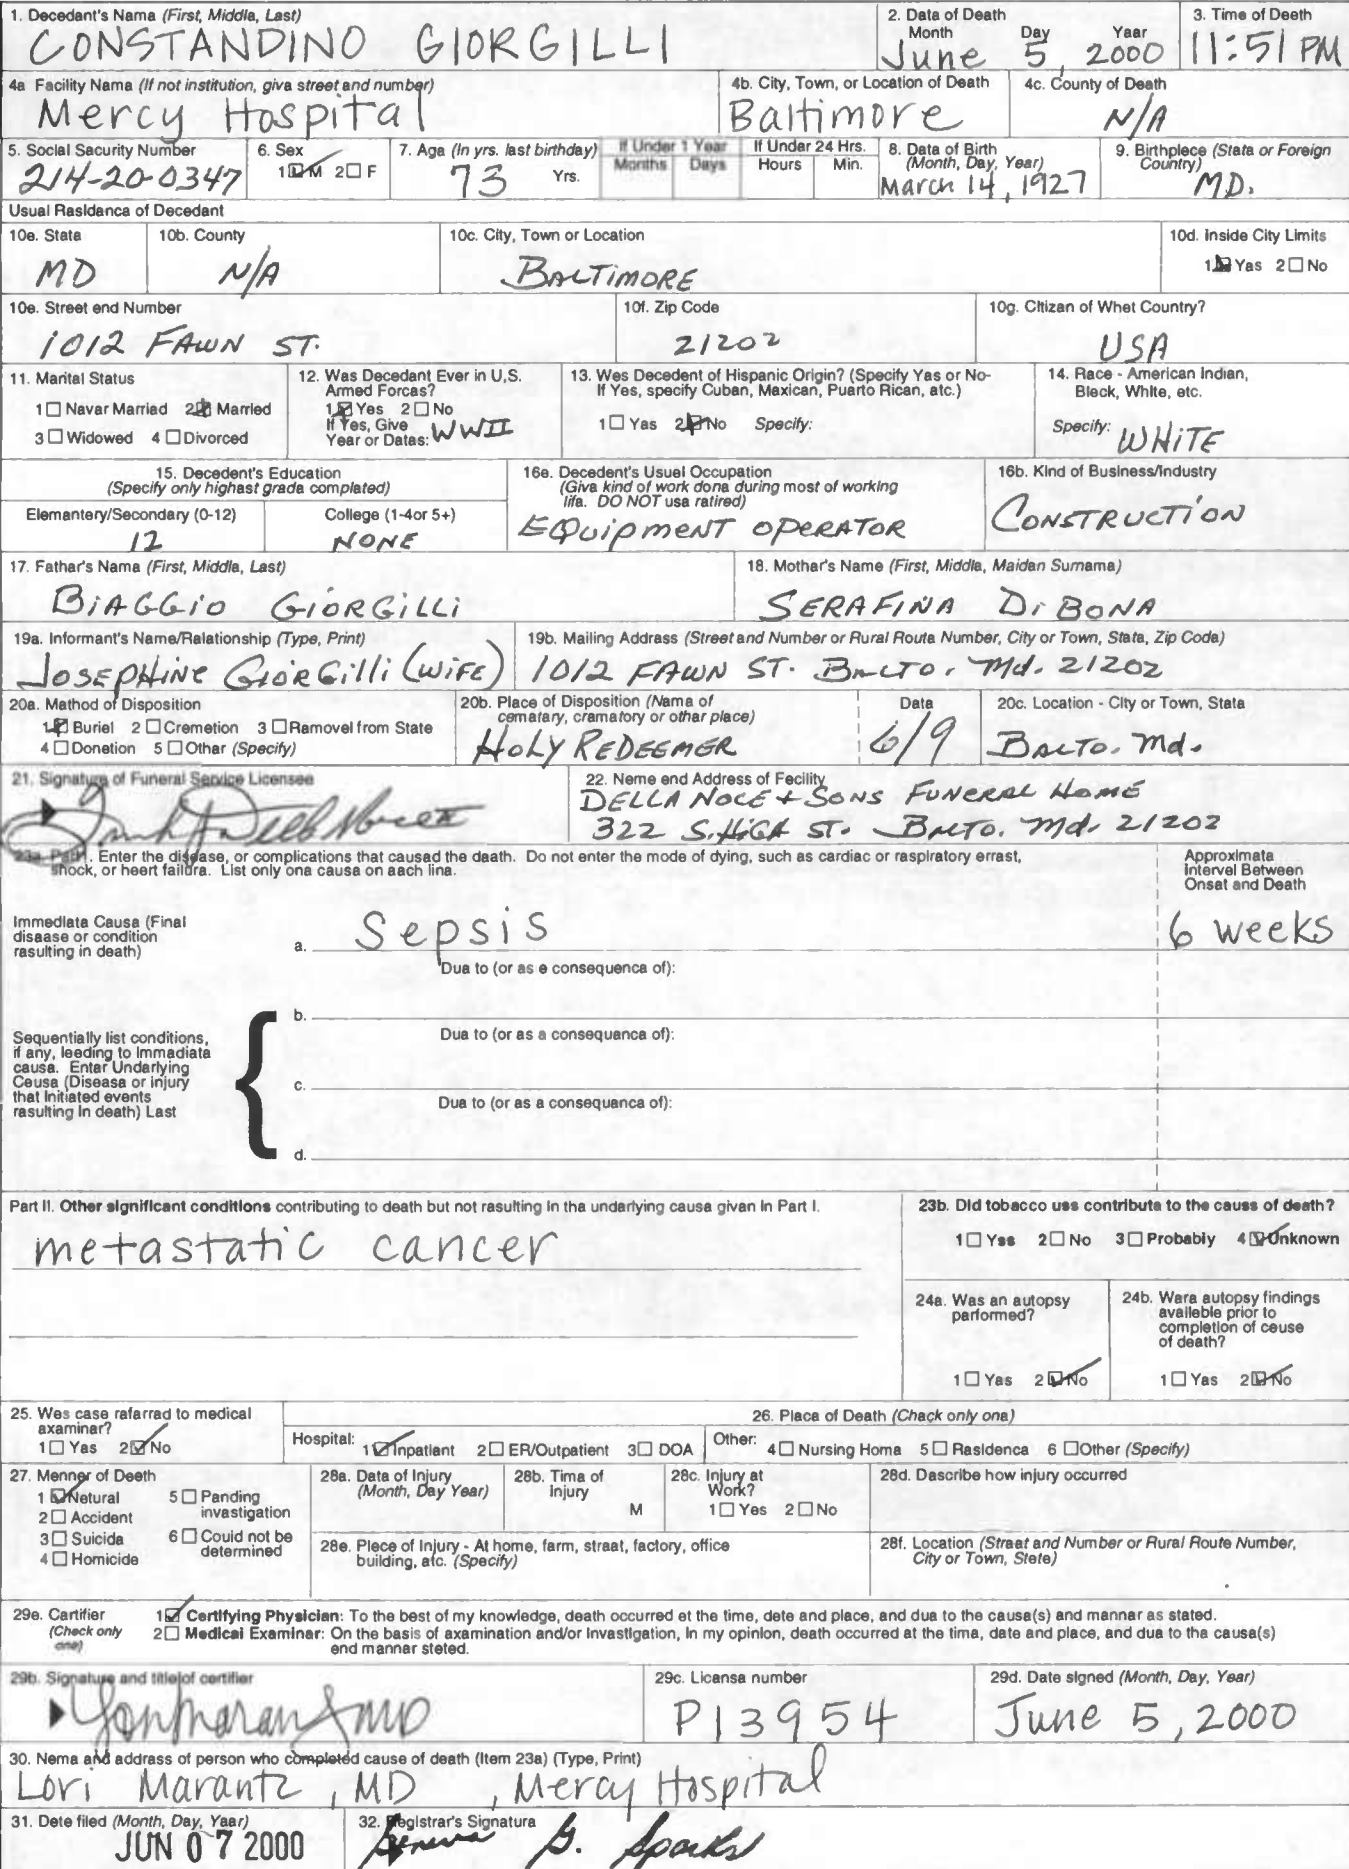 1. Decedant's Name (First, Middle, Last)
CONSTANDINO GIORGILLI
2. Date of Death
Month Day Year
June 5, 2000
3. Time of Death
11:51 PM
4a Facility Name (If not institution, give street and number)
Mercy Hospital
4b. City, Town, or Location of Death
Baltimore
4c. County of Death
N/A
5. Social Security Number
214-20-0347
6. Sex
1☑M 2☐F
7. Age (In yrs. last birthday)
73 Yrs.
If Under 1 Year
Months Days
If Under 24 Hrs.
Hours Min.
8. Date of Birth
(Month, Day, Year)
March 14, 1927
9. Birthplace (State or Foreign
Country)
MD.
Usual Residence of Decedant
10a. State
MD
10b. County
N/A
10c. City, Town or Location
BALTIMORE
10d. Inside City Limits
1☑Yes 2☐No
10e. Street and Number
1012 FAWN ST.
10f. Zip Code
21202
10g. Citizen of What Country?
USA
11. Marital Status
1☐Never Married 2☑Married
3☐Widowed 4☐Divorced
12. Was Decedant Ever in U.S.
Armed Forces?
1☑Yes 2☐No
If Yes, Give
Year or Dates: WWII
13. Was Decedent of Hispanic Origin? (Specify Yes or No-
If Yes, specify Cuban, Mexican, Puerto Rican, etc.)
1☐Yes 2☑No Specify:
14. Race - American Indian,
Black, White, etc.
Specify: WHITE
15. Decedent's Education
(Specify only highest grade completed)
Elementary/Secondary (0-12)
12
College (1-4or 5+)
NONE
16a. Decedent's Usual Occupation
(Give kind of work done during most of working
life. DO NOT use retired)
EQUIPMENT OPERATOR
16b. Kind of Business/Industry
CONSTRUCTION
17. Father's Name (First, Middle, Last)
BIAGGIO GIORGILLI
18. Mother's Name (First, Middle, Maiden Surname)
SERAFINA DI BONA
19a. Informant's Name/Relationship (Type, Print)
JOSEPHINE GIORGILLI (WIFE)
19b. Mailing Address (Street and Number or Rural Route Number, City or Town, State, Zip Code)
1012 FAWN ST. BALTO. Md. 21202
20a. Method of Disposition
1☑Burial 2☐Cremation 3☐Removal from State
4☐Donation 5☐Other (Specify)
20b. Place of Disposition (Name of
cemetery, crematory or other place)
HOLY REDEEMER
Date
6/9
20c. Location - City or Town, State
BALTO. Md.
21. Signature of Funeral Service Licensee
22. Name and Address of Facility
DELLA NOCE + SONS FUNERAL HOME
322 S. HIGH ST. BALTO. Md. 21202
23a. Part I. Enter the disease, or complications that caused the death. Do not enter the mode of dying, such as cardiac or respiratory arrest,
shock, or heart failure. List only one cause on each line.
Approximate
Interval Between
Onset and Death
Immediate Cause (Final
disease or condition
resulting in death)
a. Sepsis
6 weeks
Due to (or as a consequence of):
b.
Sequentially list conditions,
if any, leading to immediate
cause. Enter Underlying
Cause (Disease or injury
that initiated events
resulting in death) Last
Due to (or as a consequence of):
c.
Due to (or as a consequence of):
d.
Part II. Other significant conditions contributing to death but not resulting in the underlying cause given in Part I.
metastatic cancer
23b. Did tobacco use contribute to the cause of death?
1☐Yes 2☐No 3☐Probably 4☑Unknown
24a. Was an autopsy
performed?
1☐Yes 2☑No
24b. Were autopsy findings
available prior to
completion of cause
of death?
1☐Yes 2☑No
25. Was case referred to medical
examiner?
1☐Yes 2☑No
26. Place of Death (Check only one)
Hospital: 1☑Inpatient 2☐ER/Outpatient 3☐DOA Other: 4☐Nursing Home 5☐Residence 6☐Other (Specify)
27. Manner of Death
1☑Natural
2☐Accident
3☐Suicide
4☐Homicide
5☐Pending
investigation
6☐Could not be
determined
28a. Date of Injury
(Month, Day Year)
28b. Time of
Injury
M
28c. Injury at
Work?
1☐Yes 2☐No
28d. Describe how injury occurred
28e. Place of Injury - At home, farm, street, factory, office
building, etc. (Specify)
28f. Location (Street and Number or Rural Route Number,
City or Town, State)
29a. Certifier
(Check only
one)
1☑Certifying Physician: To the best of my knowledge, death occurred at the time, date and place, and due to the cause(s) and manner as stated.
2☐Medical Examiner: On the basis of examination and/or investigation, in my opinion, death occurred at the time, date and place, and due to the cause(s)
and manner stated.
29b. Signature and title of certifier
MD
29c. License number
P13954
29d. Date signed (Month, Day, Year)
June 5, 2000
30. Name and address of person who completed cause of death (Item 23a) (Type, Print)
Lori Marantz, MD, Mercy Hospital
31. Date filed (Month, Day, Year)
JUN 07 2000
32. Registrar's Signature
Geneva G. Sparks